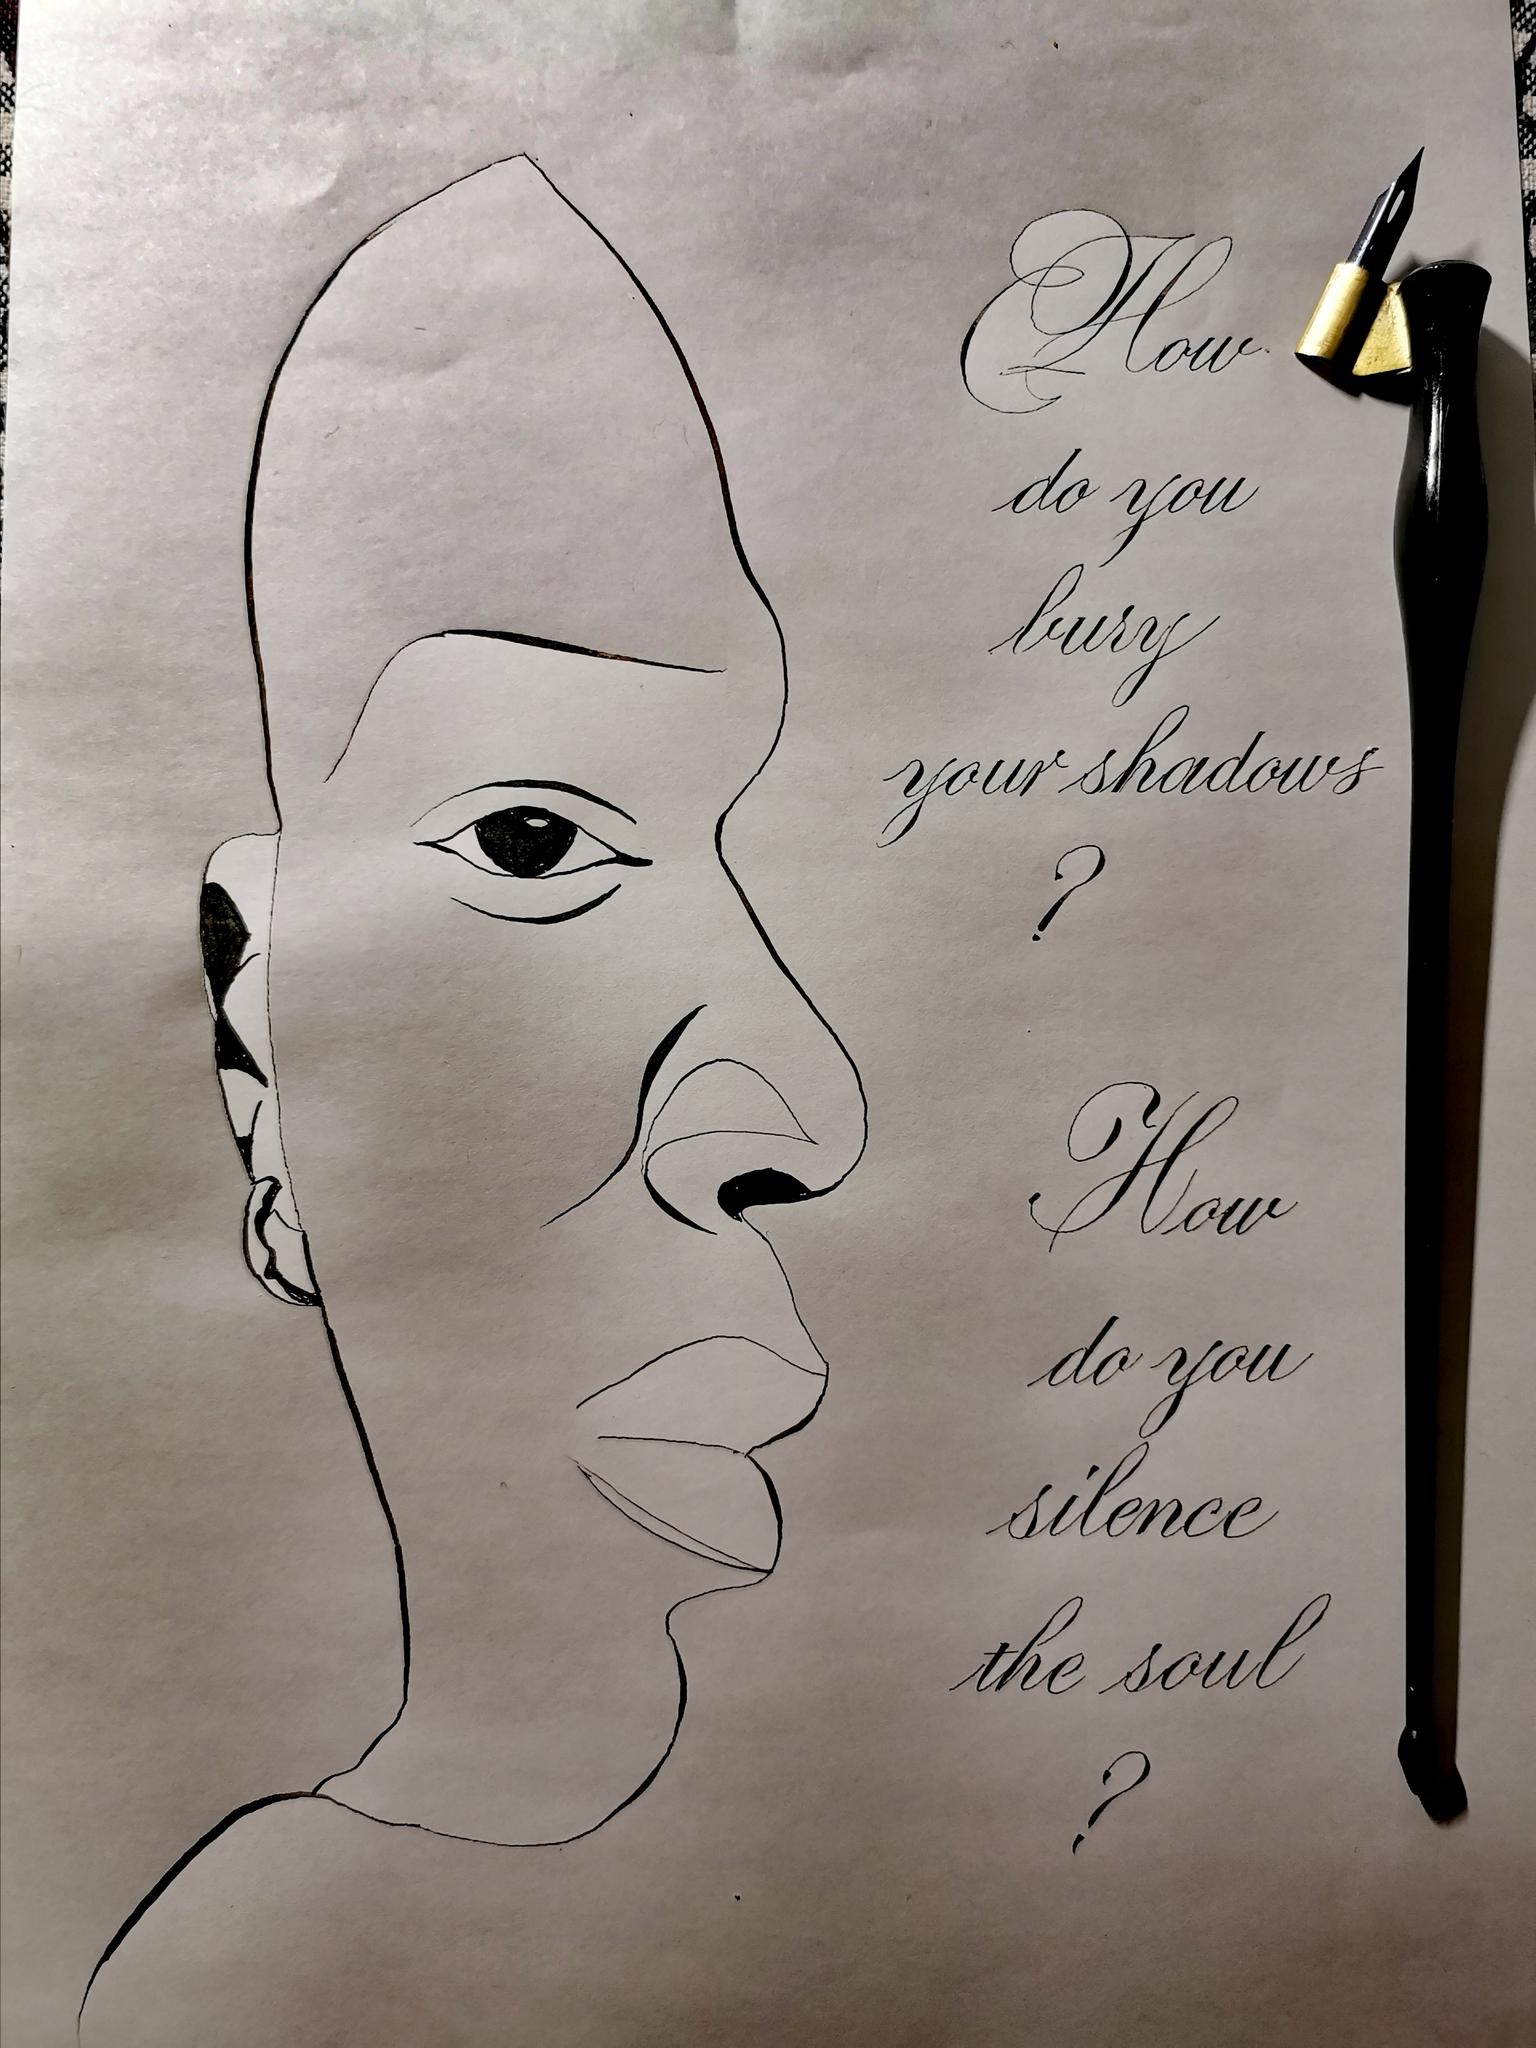 How
do you
bury
your shadows
?
How
do you
silence
the soul
?